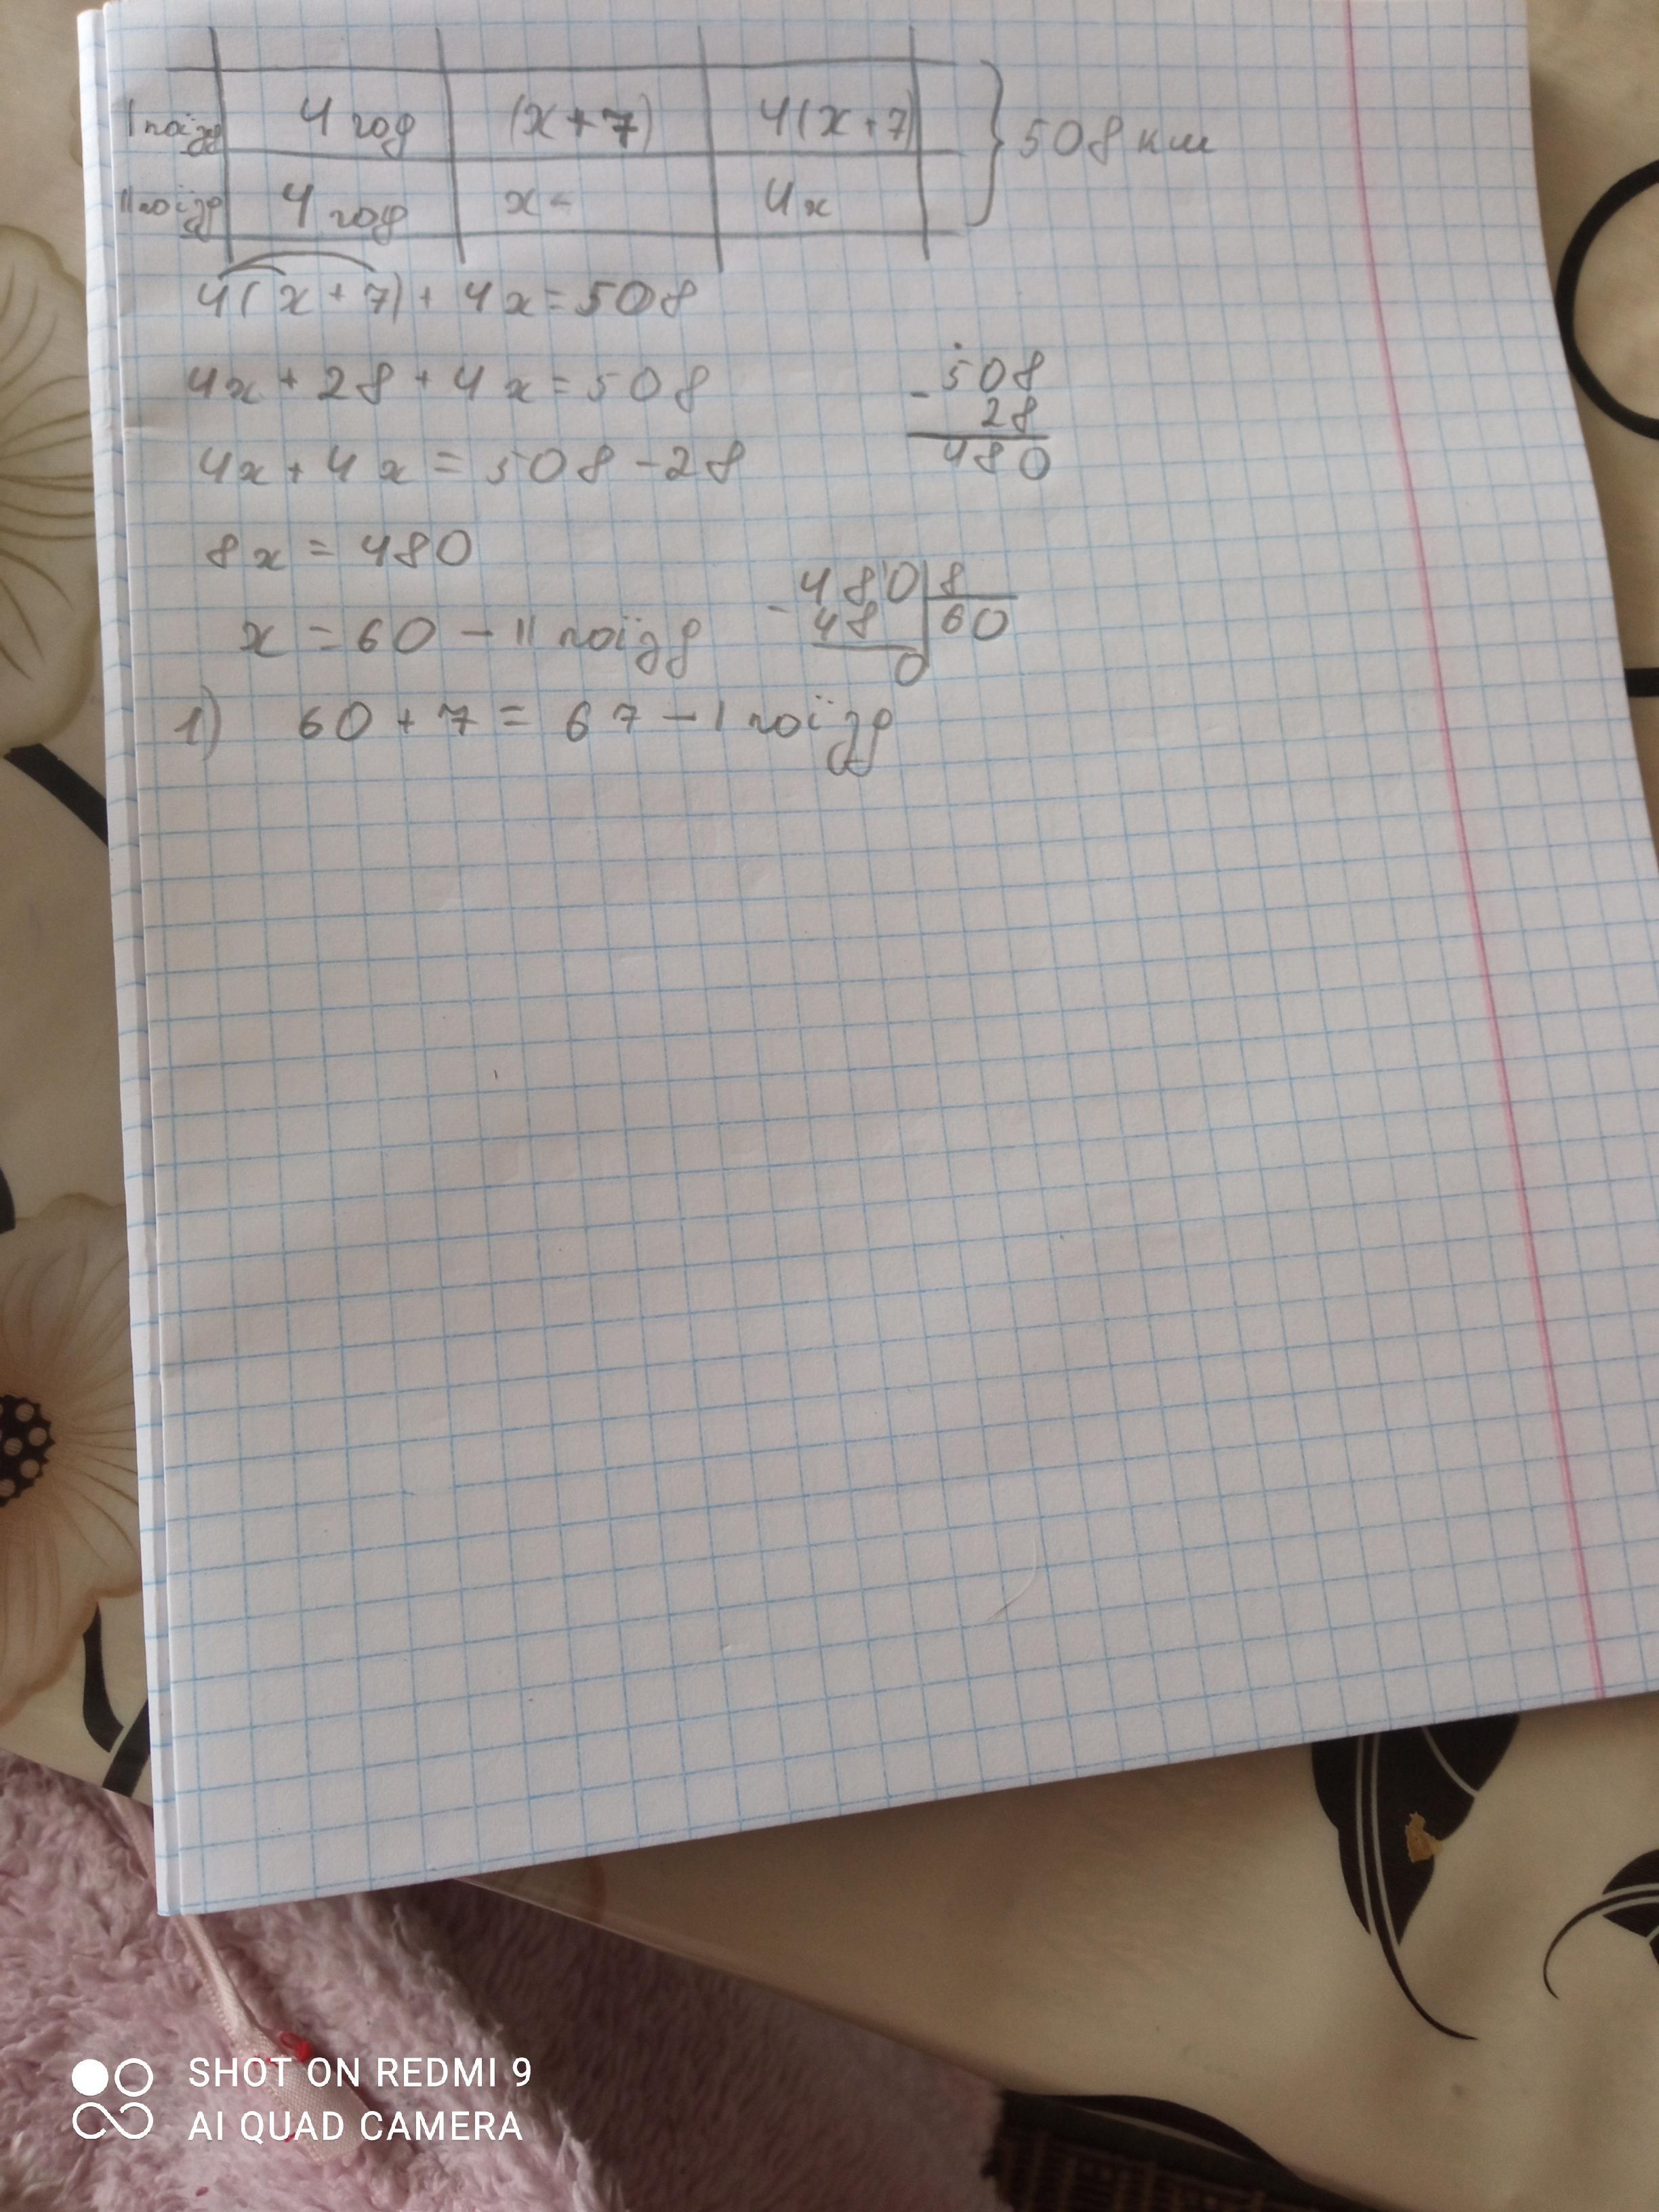 I поїзд 4 год (x+7) 4(x+7) } 508 км
II поїзд 4 год x - 4x
4(x+7)+4x=508
4x+28+4x=508
4x+4x=508-28
8x=480
x=60-II поїзд
1) 60+7=67-I поїзд
-508
28
480
-480|8
48 60
0
SHOT ON REDMI 9
AI QUAD CAMERA